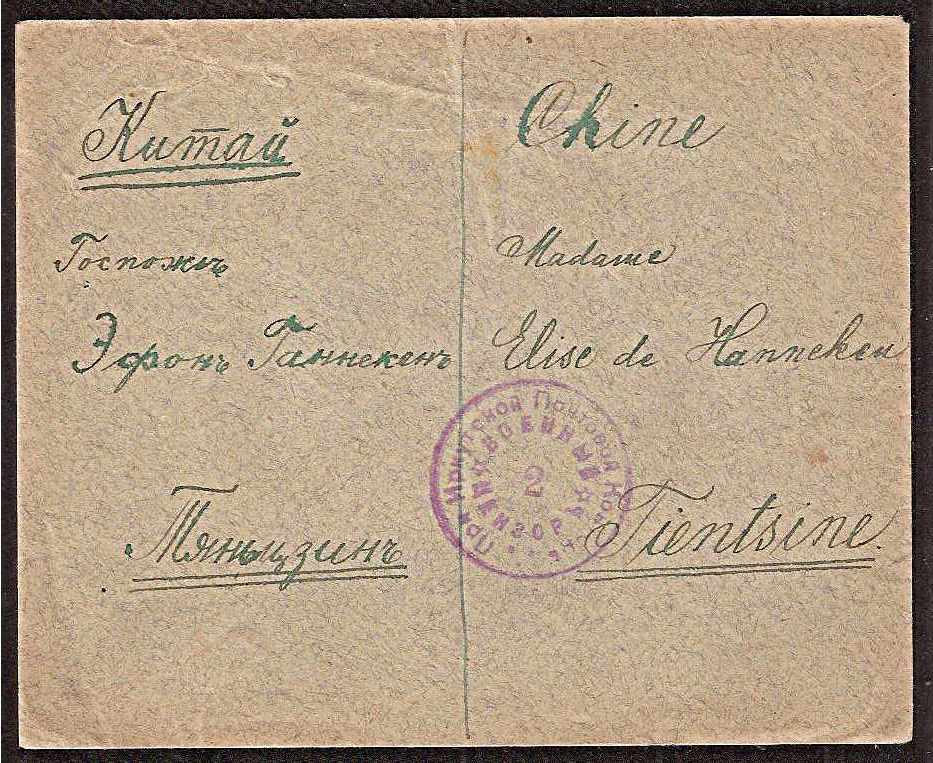 Китай
Госпожѣ
Эфонъ Ганнекенъ
Тяньцзинъ
Chine
Madame
Elise de Hanneken
Tientsine.
При Иркутской Почтовой
ВОЕННЫЙ
2